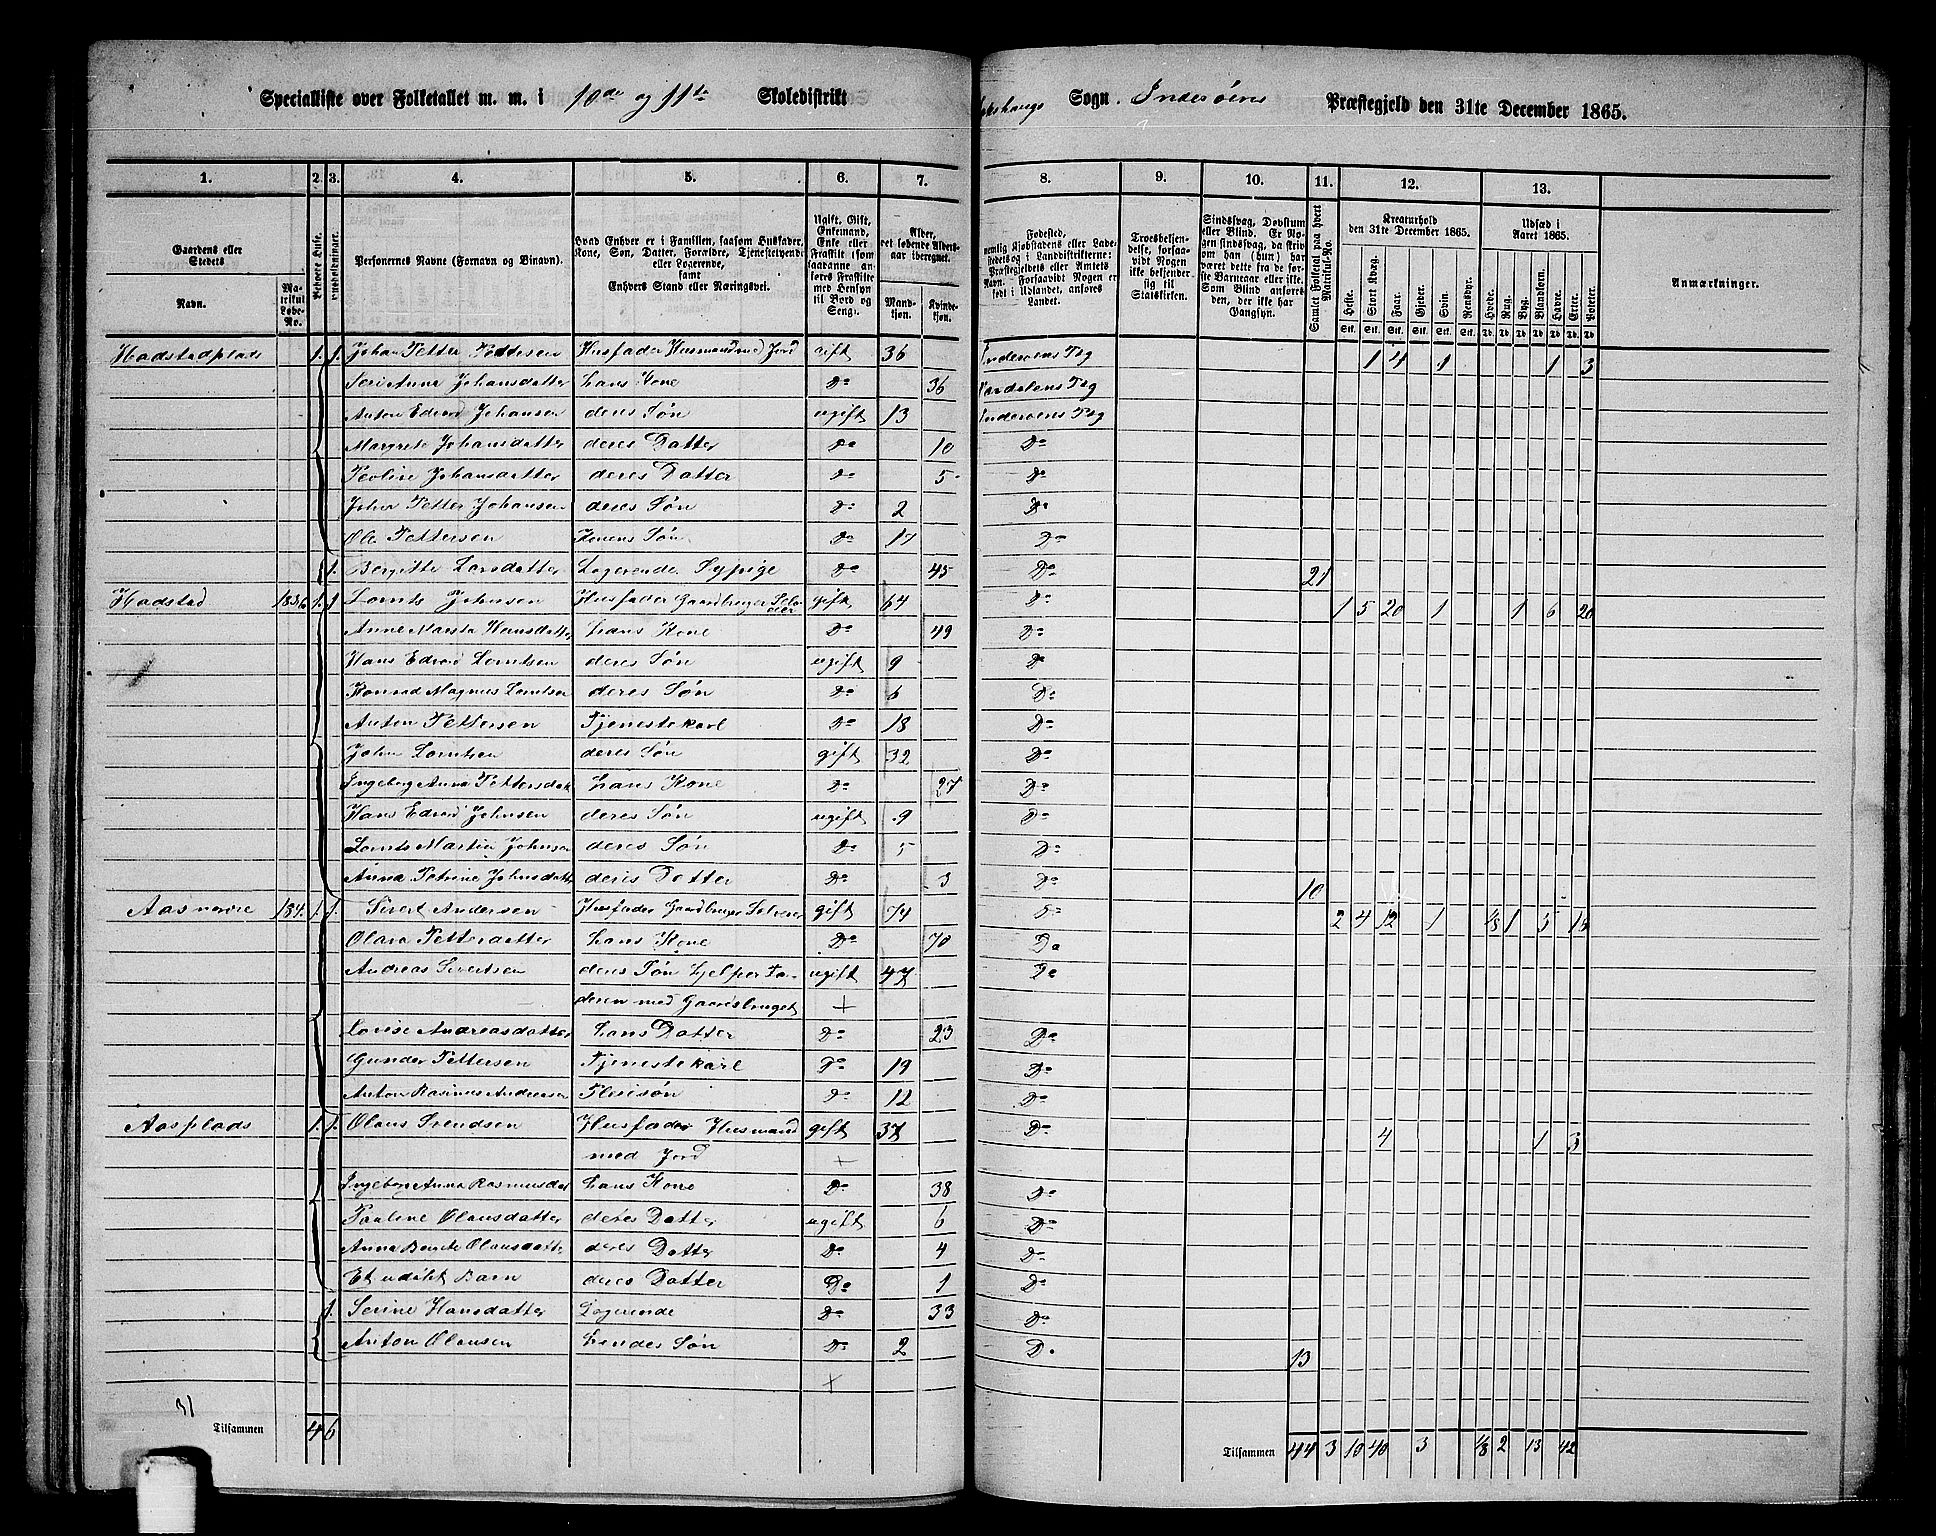 Specialliste over Folketallet m. m. i 10de og 11te Skoledistrikt Sogn, Inderøens Præstegjeld den 31te December 1865.
1. 2. 3. 4. 5. 6. 7. 8. 9. 10. 11. 12. 13.
Gaardens eller Stedets Navn. Matrikul Løbe-No. Beboede Huse. Huusholdninger. Personernes Navne (Fornavn og Binavn). Hvad Enhver er i Familien, saasom Husfader, Kone, Søn, Datter, Forældre, Tjenestetyende eller Logerende, samt Enhvers Stand eller Næringsvei. Ugift, Gift, Enkemand, Enke eller Fraskilt (saaledes anføres Fraskilte med Hensyn til Bord og Seng). Alder, det løbende Aldersaar iberegnet. Mandkjøn. Kvindekjøn.
Fødested, nemlig Kjøbstadens eller Ladestedets og i Landdistrikterne: Præstegjeldets eller Amtets Navn. Forsaavidt Nogen er født i Udlandet, anføres Landet. Troesbekjendelse, forsaavidt Nogen ikke bekjender sig til Statskirken. Sindssvag, Døvstum eller Blind. Samlet Folketal paa hvert Matrikul-No. Kreaturhold den 31te December 1865. Heste. Stort Kvæg. Faar. Gjeder. Svin. Rensdyr. Udsæd i Aaret 1865. Hvede. Rug. Byg. Blandkorn. Havre. Erter. Poteter. Anmærkninger.
Hadstadplads 1. 1. Johan Petter Pettersen Husfader Husmand med Jord gift 36 Inderøens Pg 1 4 1 1 3
Anna Johansdatter hans Kone Do 36 Værdalens Pg
Anton Edvard Johansen deres Søn ugift 13 Inderøens Pg
Margrete Johansdatter deres Datter Do 10 Do
Johansdatter deres Datter Do 5 Do
Johan Petter Johansen deres Søn Do 2 Do
Ole Pettersen Konens Søn Do 17 Do
1. Bergitte Larsdatter Logerende Sypige Do 45 Do 21
Hadstad 183 1. 1 Lornts Johnsen Husfader Gaardbruger Selveier gift 64 Do 1 5 20 1 1 6 20
Anne Marta Hansdatter hans Kone Do 49 Do
Hans Edvard Lorntsen deres Søn ugift 9 Do
Konrad Magnus Lorntsen deres Søn Do 6 Do
Anton Pettersen Tjenestekarl Do 18 Do
John Lorntsen deres Søn gift 32 Do
Ingeborg Anna Pettersdat hans Kone Do 27 Do
Hans Edvard Johnsen deres Søn ugift 9 Do
Lornts Martin Johnsen deres Søn Do 5 Do
Anna Petrine Johnsdatter deres Datter Do 3 Do 10
184. 1. 1. Sivert Andersen Husfader Gaardbruger Selveier gift 74 Do 2 4 12 1 1/8 1 5 15
Olava Pettersdatter hans Kone Do 70 Do
Andreas Sivertsen deres Søn hjelper Fa- ugift 47 Do
deren med Gaardsbruget +
Lovise Andreasdatter hans Datter Do 23 Do
Gunder Pettersen Tjenestekarl Do 19 Do
Anton Rasmus Andersen Pleiesøn Do 12 Do
Aasplads 1. 1. Olaus Svendsen Husfader Husmand gift 37 Do 4 1 3
med Jord +
Ingeborg Anna Rasmusdat hans Kone Do 38 Do
Pauline Olausdatter deres Datter ugift 6 Do
Anna Bergite Olausdatter deres Datter Do 4 Do
Et udøbt Barn deres Datter Do 1 Do
1. Serine Hansdatter Logerende Do 33 Do
Anton Olausen hendes Søn Do 2 Do 13
+
31
Tilsammen 4 6 Tilsammen 44 3 10 40 3 1/8 2 13 42